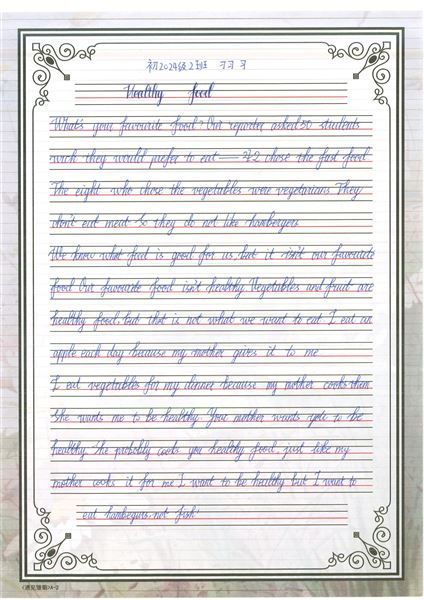 初2024级2班
Healthy food
What's your favourite food? Our reporter asked 50 students
wich they would prefer to eat — 42 chose the fast food
The eight who chose the vegetables were vegetarians They
don't eat meat So they do not like hambergers
We know what food is good for us, but it isn't our favourite
food Our favourite food isn't healthy Vegetables and fruit are
healthy food, but that is not what we want to eat I eat an
apple each day because my mother gives it to me
I eat vegetables for my dinner because my mother cooks them
She wants me to be healthy. Your mother wants you to be
healthy. She probably cooks you healthy food, just like my
mother cooks it for me I want to be healthy but I want to
eat hambegurs, not fish'